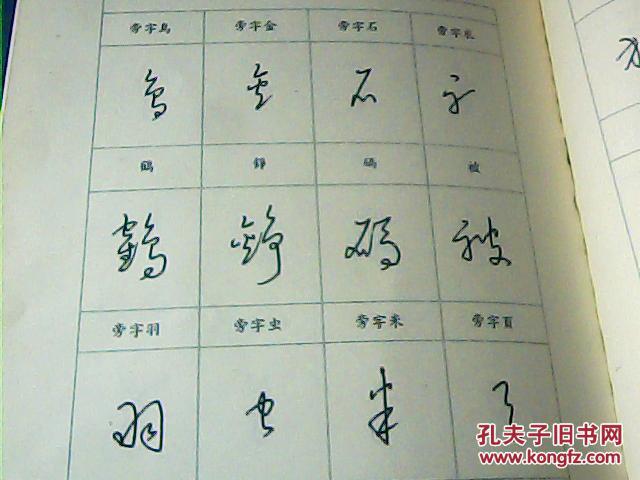 旁字鳥 旁字金 旁字石 旁字衣
鳥 金 石 衤
鶴 錚 碼 被
鶴 錚 碼 被
旁字羽 旁字虫 旁字米 旁字頁
羽 虫 米 頁
孔夫子旧书网
www.kongfz.com